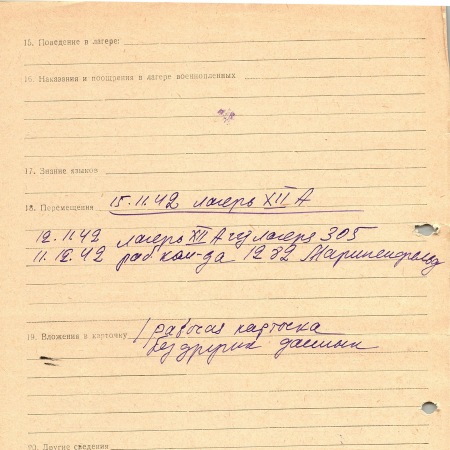 15. Поведение в лагере:
16. Наказания и поощрения в лагере военнопленных
17. Знание языков
18. Перемещения 15.11.42 лагерь XII А
12.11.42 лагерь XII А из лагеря 305
11.12.42 раб ком-да 1282 Мариненфельд
19. Вложения в карточку 1 рабочая карточка
без других данных
20. Другие сведения